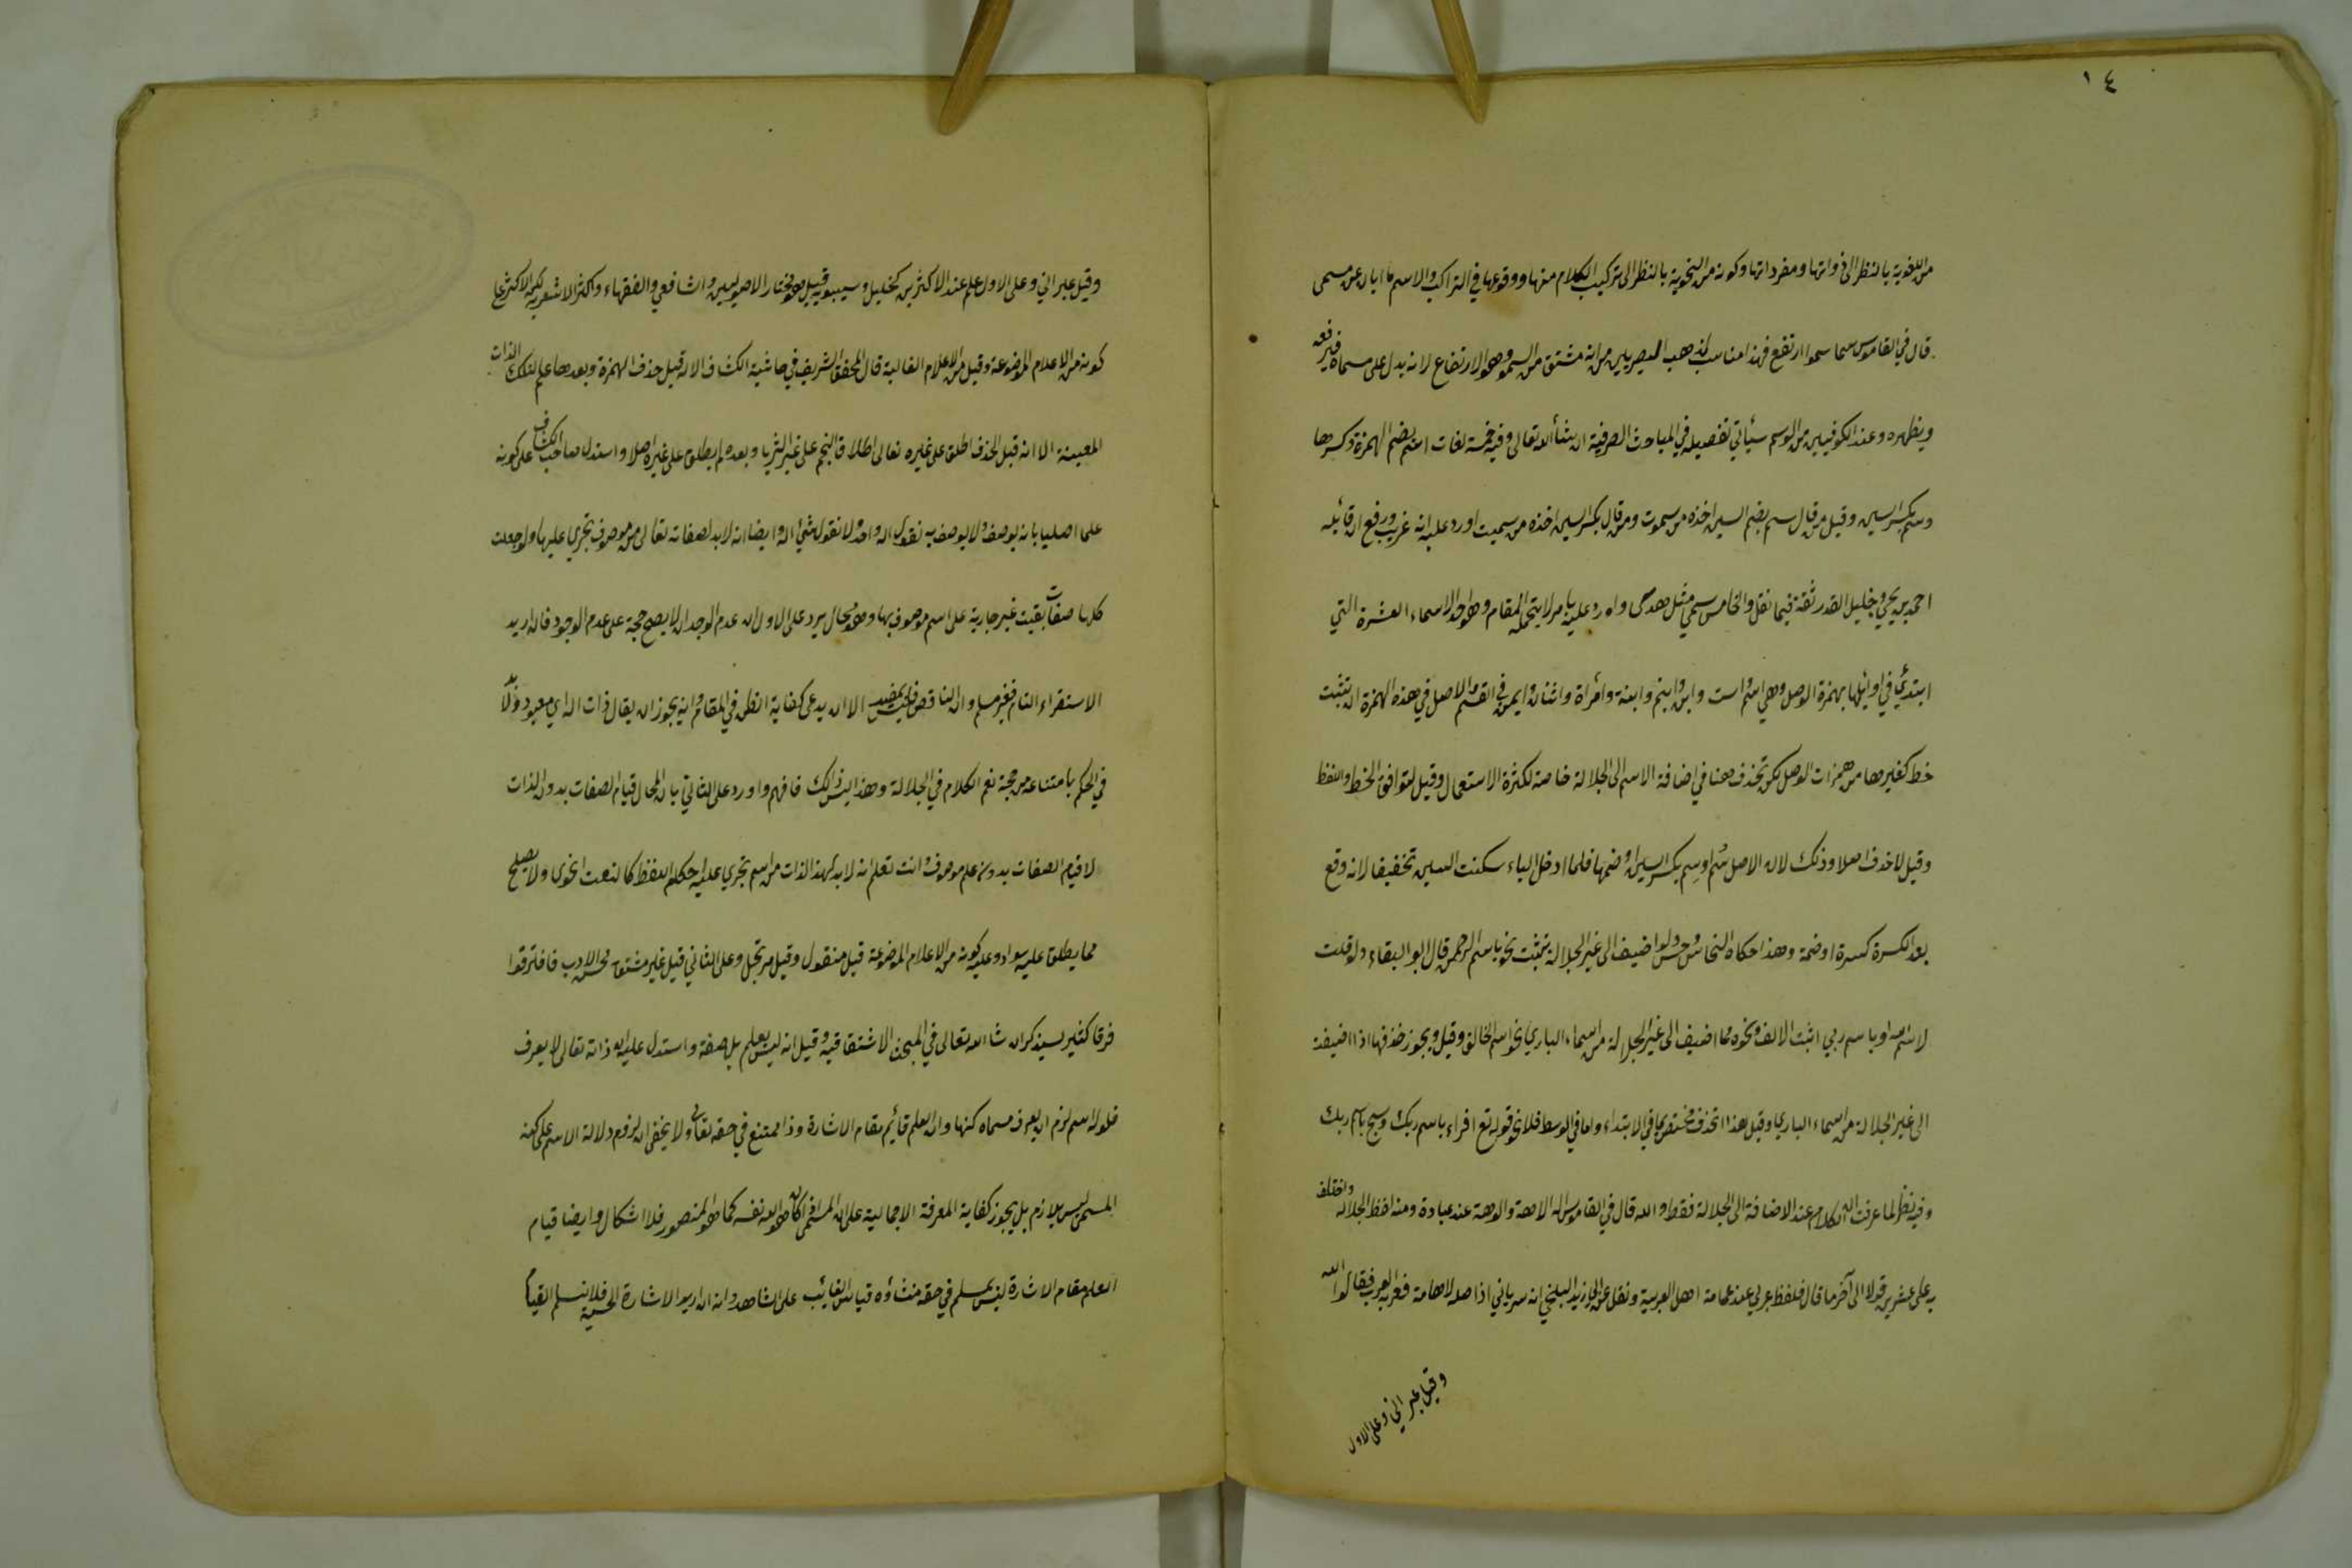 ١٤
من اللغوية بالنظر الى ذواتها ومفرداتها وكونه من النحوية بالنظر الى تركيب الكلام منها ووقوعها في التراكيب والاسم ما ابان عن مسمى
قال في القاموس سما سموا ارتفع فهذا مناسب لمذهب البصريين من انه مشتق من السمو وهو الارتفاع لانه يدل على مسماه فيرفعه
ويظهره وعند الكوفيين من الوسم سيأتي تفصيله في المباحث الصرفية ان شاء الله تعالى وفيه خمسة لغات اسم بضم الهمزة وكسرها
وسم بكسر السين وقيل من قال سم بضم السين اخذه من سموت ومن قال بكسر السين اخذه من سميت اورد عليه انه غريب ورفع ان قائله
احمد بن يحيى وجليل القدر ثقة فيما نقل والخامس سمى مثل هدى واورد عليه بامر لا يتحمله المقام وهو احد الاسماء العشرة التي
ابتدئ في اوائلها بهمزة الوصل وهي اسم واست وابن وابنم وابنة وامرأة واثنان وايمن في القسم والاصل في هذه الهمزة ان تثبت
خط كغيرها من همزات الوصل لكن تحذف هنا في اضافة الاسم الى الجلالة خاصة لكثرة الاستعمال وقيل لتوافق الخط واللفظ
وقيل لا حذف اصلا وذلك لان الاصل سُم او سِم بكسر السين او ضمها فلما ادخل الباء سكنت السين تخفيفا لانه وقع
بعد الكسرة كسرة او ضمة وهذا حكاه النحاس وحسن ولو اضيف الى غير الجلالة تثبت نحو باسم الرحمن قال ابو البقاء ولو قلت
لاسم الله او باسم ربي اثبت الالف ونحوه مما اضيف الى غير الجلالة من اسماء الباري نحو اسم الخالق وقيل ويجوز حذفها اذا اضيفت
الى غير الجلالة من اسماء الباري وقيل هذا الحذف مختص بما في الابتداء واما في الوسط فلا نحو قوله تع اقراء باسم ربك وسبح باسم ربك
وفيه نظر لما عرفت ان الكلام عند الاضافة الى الجلالة فقط والله قال في القاموس اله الاهة والوهة عند عبادة ومنه لفظ الجلالة واختلف
به على عشرين قولا الى آخر ما قال فلفظ عربي عند عامة اهل العربية ونقل عن ابي زيد البلخي انه سرياني اذ اصله لاهامة فعربه العرب فقالوا الله
وقيل عبراني وعلى الاول
وقيل عبراني وعلى الاول علم عند الاكثرين كخليل وسيبويه قيل هو مختار الاصوليين والشافعي والفقهاء واكثر الاشعرية لكن الاكثر على
كونه من الاعلام الموضوعة وقيل من الاعلام الغالبة قال المحقق الشريف في حاشية الكشاف الاله قبل حذف الهمزة وبعدها علم لتلك الذات
المعينة الا انه قبل الحذف اطلق على غيره تعالى اطلاق النجم على غير الثريا وبعده لم يطلق على غيره اصلا واستدل صاحب الكشاف على كونه
علما اصليا بانه يوصف ولا يوصف به تقول اله واحد ولا تقول شيء اله وايضا انه لابد لصفاته تعالى من موصوف تجري عليها ولو جعلت
كلها صفات بقيت غير جارية على اسم موصوف بها وهو محال يرد على الاول ان عدم الوجدان لا يصح حجة على عدم الوجود فان اريد
الاستقراء التام فغير مسلم وان الناقص فليس بمفيد الا ان يدعى كفاية الظن في المقام وانه يجوز ان يقال ذات اله اي معبود ولا بد
في الحكم بامتناعه من حجة نعم الكلام في الجلالة وهذا ليس ذالك فافهم واورد على الثاني بان المحال قيام الصفات بدون الذات
لا قيام الصفات بدون علم موصوف وانت تعلم انه لابد لهذا الذات من اسم تجري عليه احكام اللفظ كالنعت النحوى ولا يصلح
مما يطلق عليه سواه وعليه كونه من الاعلام الموضوعة قيل منقول وقيل مرتجل وعلى الثاني قيل غير مشتق محسن الادب فافترقوا
فرقا كثير سيذكر ان شاء الله تعالى في المبحث الاشتقاقيه وقيل انه ليس بعلم بل صفة واستدل عليه بان ذاته تعالى لا يعرف
فلو له اسم لزم ان يعرف مسماه كنها وان العلم قائم مقام الاشارة وذا ممتنع في حقه تعالى ولا يخفى ان لزوم دلالة الاسم على كنه
المسمى ليس بلازم بل يجوز كفاية المعرفة الاجمالية على ان المسمى كان هو الله نفسه كما هو المنصور فلا اشكال وايضا قيام
العلم مقام الاشارة ليس بمسلم في حقه منشاؤه قياس الغائب على الشاهد وانه ان اريد الاشارة الحسية فلا نسلم القيام